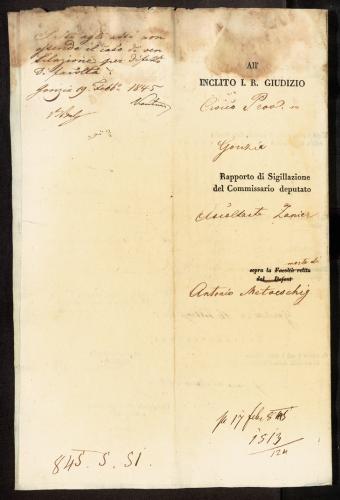 Si
agli atti non
essendo il caso di ven
tilazione per difetto
di facoltà
Gorizia 19 Febb. 1845
All'
INCLITO I. R. GIUDIZIO
Civico Prov. in
Gorizia
Rapporto di Sigillazione
del Commissario deputato
Ascoltante Zanier
morte di
sopra la Facoltà relitta
dal Defont
Antonio Metueschig
pr 17 feb. 845
1513
124
845. S. 51.